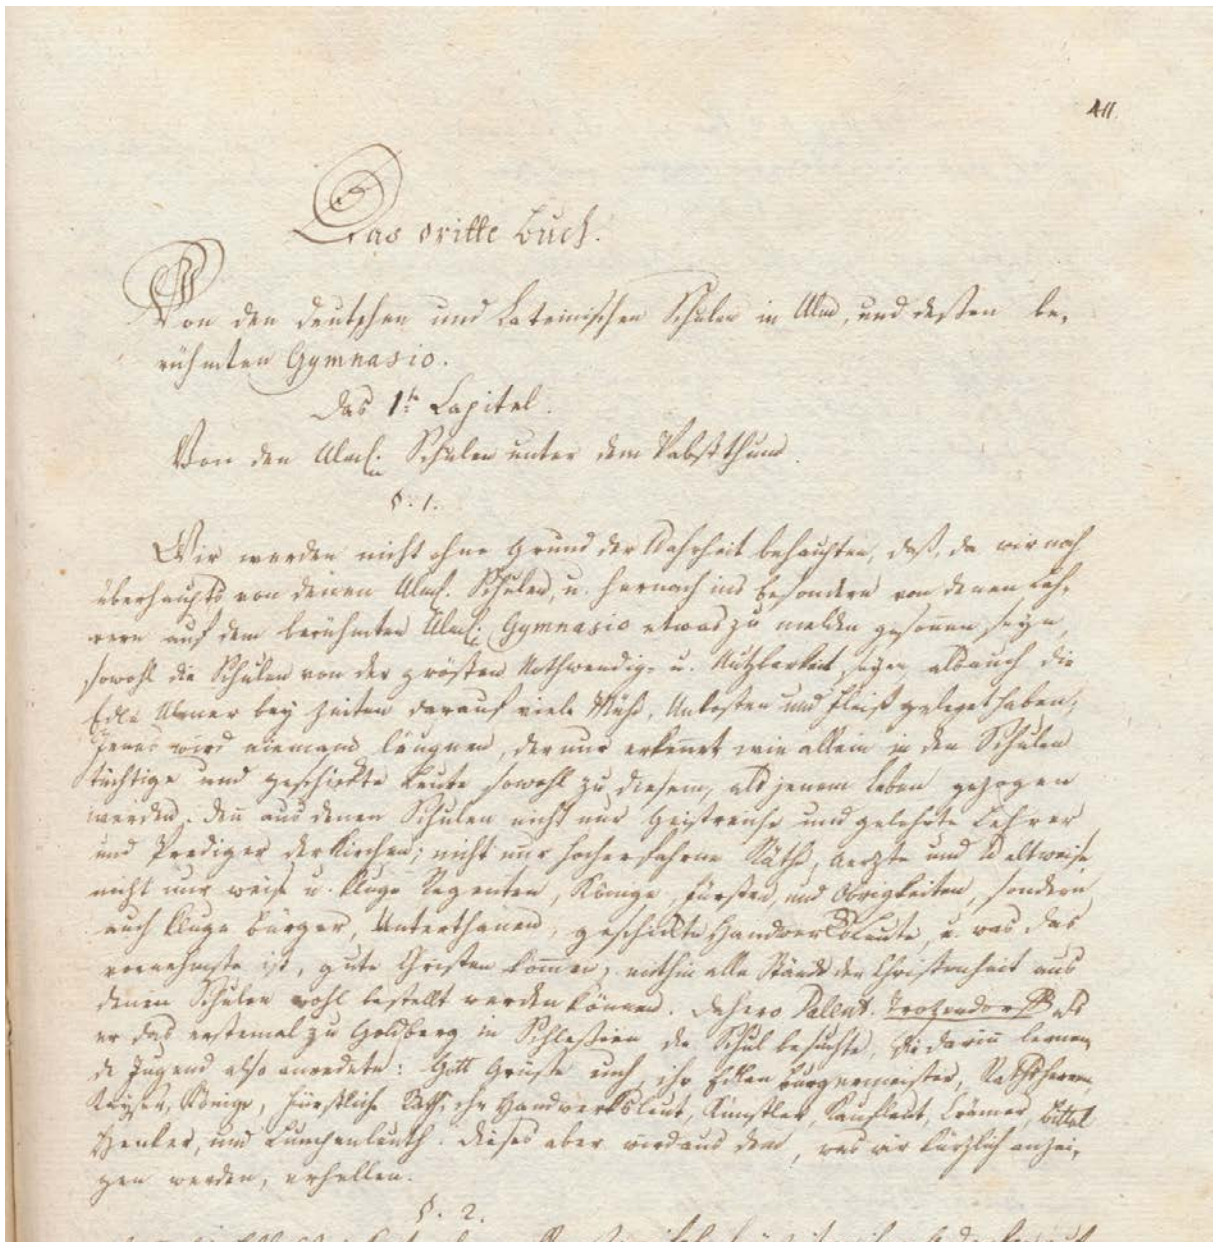 411.
Das dritte Buch.
Von den deutschen und Lateinischen Schulen in Ulm, und deßen be-
rühmten Gymnasio.
Das 1te Capitel.
Von den Ulml. Schulen unter dem Pabstthum.
§. 1.
Wir werden nicht ohne Grund der Wahrheit behaupten, daß, da wir noch
überhaupts von denen Ulml. Schulen, u. hernach ins besondere von denen Leh-
rern auf dem berühmten Ulml. Gymnasio etwas zu melden gesonnen seyn,
sowohl die Schulen von der grösten Nothwendig- u. Nutzbarkeit seyen, als auch die
Edle Ulmer bey Zeiten darauf viele Mühe, Unkosten und Fleiß geleget haben;
Jenes wird niemand läugnen, der nur erkennet wie allein in den Schulen
tüchtige und geschickte Leute sowohl zu diesem, als jenem Leben gezogen
werden. Den aus denen Schulen nicht nur Geistreiche und gelehrte Lehrer
und Prediger der Kirchen; nicht nur hocherfahrne Räthe, Aerzte und Weltweise,
nicht nur weise u. kluge Regenten, Könige, Fürsten, und Obrigkeiten, sondern
auch kluge Bürger, Unterthanen, geschickte Handwerksleute, u. was das
vornehmste ist, gute Christen kommen, mithin alle Stände der Christenheit aus
denen Schulen wohl bestellt werden können. Dahero Trozendorff als
er das erstemal zu Goldberg in Schlesien die Schul besuchte, die darinn lernen-
de Jugend also anredete: Gott Grüße euch, ihr Edlen Burgermeister, Rathsherrn,
Kayser, Könige, Fürstliche Räth, ihr Handwerksleut, Künstler, Kaufleut, Crämer, Büttel
Henker, und Lumpenleuth. Dieses aber wird aus dem, was wir kürzlich anzei-
gen werden, erhellen.
§. 2.